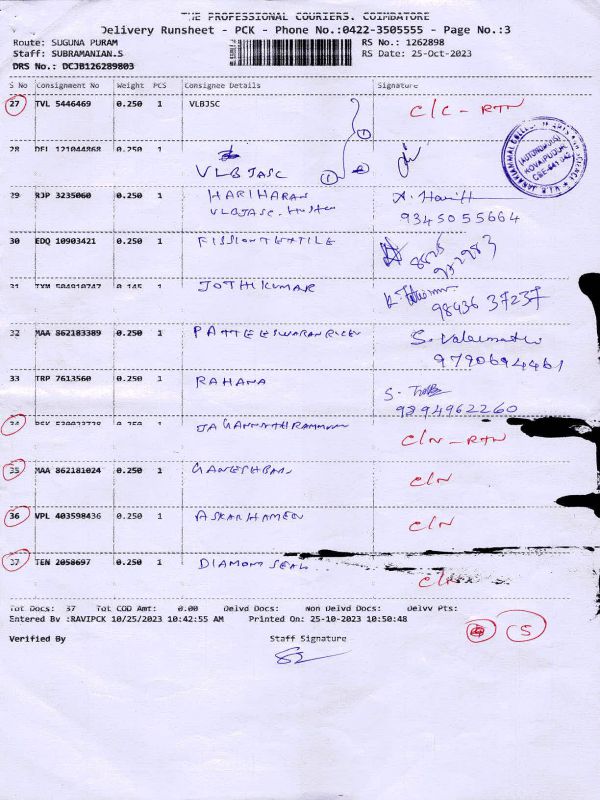 THE PROFESSIONAL COURIERS. COIMBATORE
Delivery Runsheet - PCK - Phone No.:0422-3505555 - Page No.:3
Route: SUGUNA PURAM RS No.: 1262898
Staff: SUBRAMANIAN.S RS Date: 25-Oct-2023
DRS No.: DCJB126289803
S No Consignment No Weight PCS Consignee Details Signature
27 TVL 5446469 0.250 1 VLBJSC C/C - RTN
28 DEL 121044868 0.250 1 VLBJASC
29 RJP 3235060 0.250 1 HARIHARAN
VLBJASC-
9345055664
30 EDQ 10903421 0.250 1
31 504910747 0.145 1 JOTHIKUMAR
98436 37237
32 MAA 862183389 0.250 1
9790694461
33 TRP 7613560 0.250 1 RAHANA
9894962260
34 0.250 1 C/N - RTN
35 MAA 862181024 0.250 1 C/N
36 VPL 403598436 0.250 1 C/N
37 TEN 2058697 0.250 1 DIAMOND SEAL C/N
Tot Docs: 37 Tot COD Amt: 0.00 Delvd Docs: Non Delvd Docs: Delvv Pts:
Entered By :RAVIPCK 10/25/2023 10:42:55 AM Printed On: 25-10-2023 10:50:48
5
Verified By Staff Signature